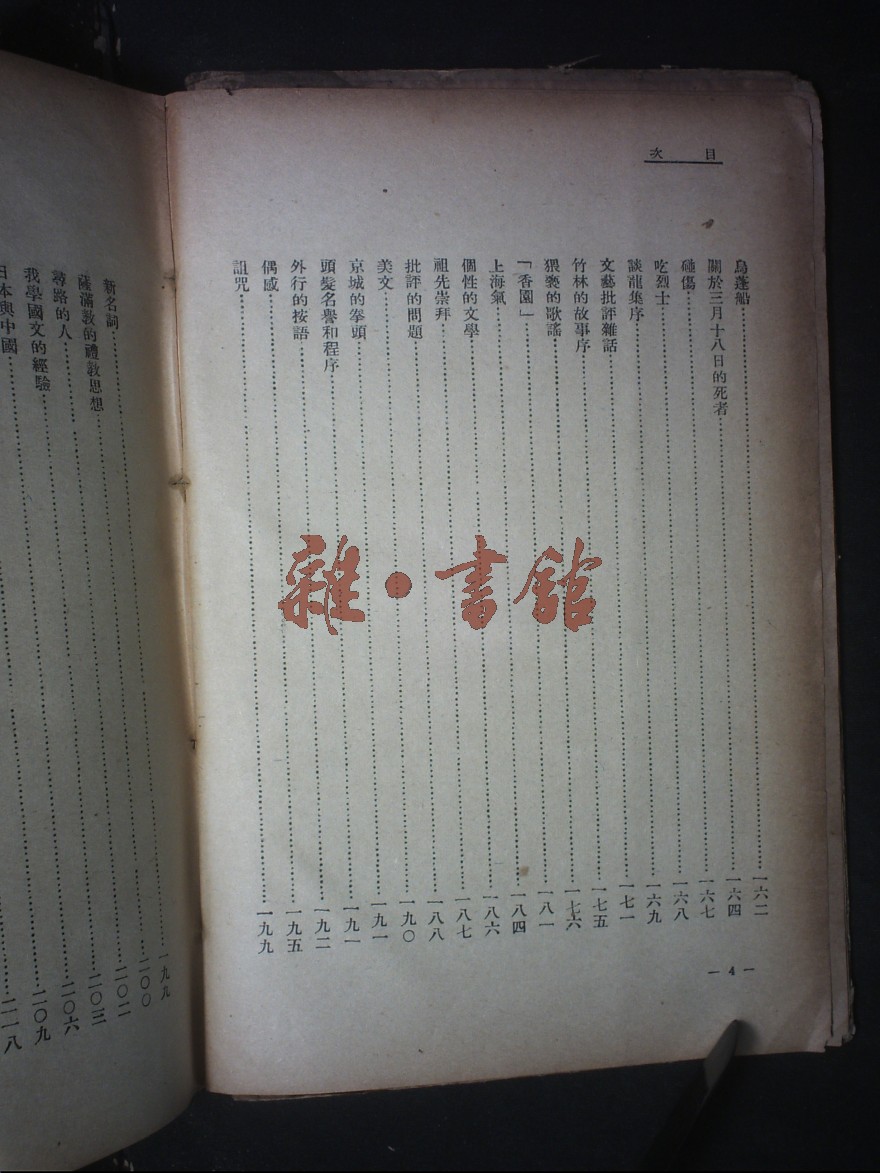 目次
烏蓬船一六二
關於三月十八日的死者一六四
碰傷一六七
吃烈士一六八
談龍集序一六九
文藝批評雜話一七一
竹林的故事序一七五
猥褻的歌謠一七六
「香園」一八一
上海氣一八四
個性的文學一八六
祖先崇拜一八七
批評的問題一八八
美文一九〇
京城的拳頭一九一
頭髮名譽和程序一九一
外行的按語一九二
偶感一九五
詛咒一九九
— 4 —
新名詞一九九
薩滿教的禮教思想二〇〇
尋路的人二〇二
我學國文的經驗二〇三
日本與中國二〇六
二〇九
二一八
雜·書館